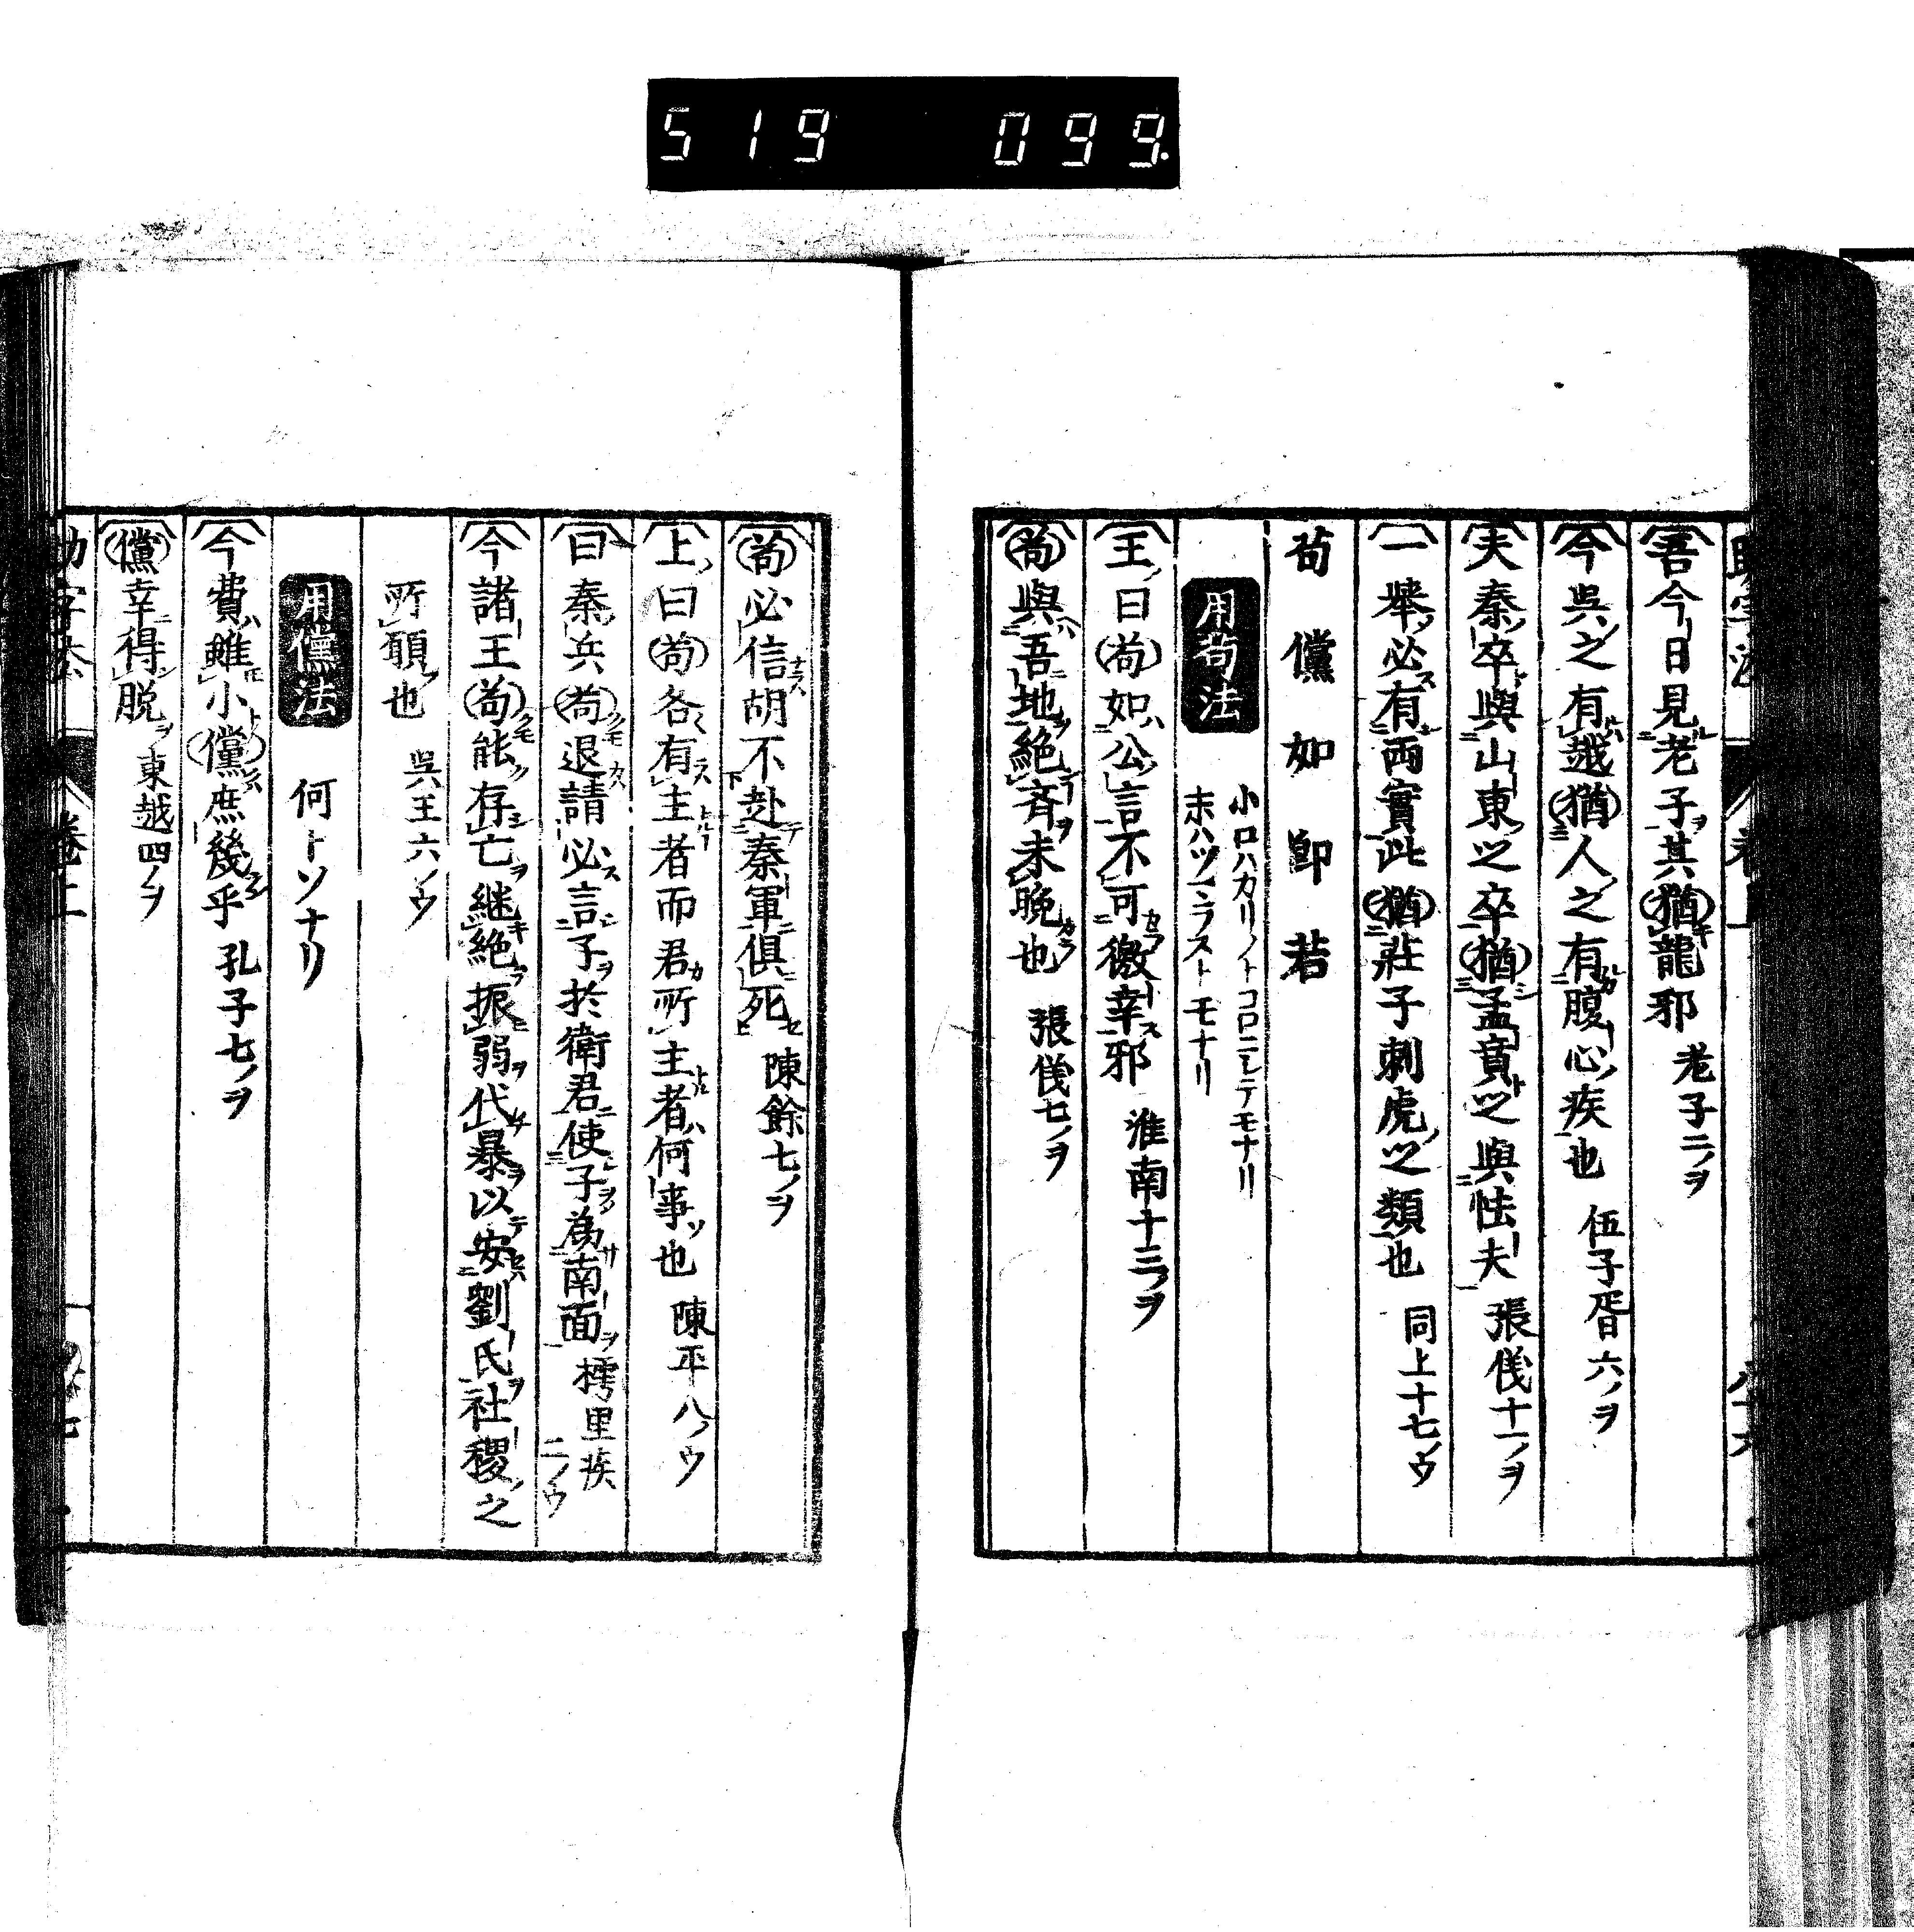 519 099.
吾今日見老子其猶龍邪 老子二ノヲ
今吳之有越猶人之有腹心疾也 伍子胥六ノヲ
夫秦卒與山東之卒猶孟賁之與怯夫 張儀十一ノヲ
一擧必有兩實此猶莊子刺虎之類也 同上十七ノウ
苟 儻 如 即 若
用苟法 小口ハカリノトコロニシテモナリ
末ハツマラストモナリ
王曰苟如公言不可徼幸邪 淮南十三ノヲ
苟與吾地絕齊未晚也 張儀七ノヲ
苟必信胡不赴秦軍俱死 陳餘七ノヲ
上曰苟各有主者而君所主者何事也 陳平八ノウ
曰秦兵苟退請必言子於衛君使子為南面 樗里疾二ノウ
今諸王苟能存亡継絕振弱伐暴以安劉氏社稷之
所願也 吳王六ノウ
用儻法 何トソナリ
今費雖小儻庶幾乎 孔子七ノヲ
儻幸得脫 東越四ノヲ
助字法 卷上